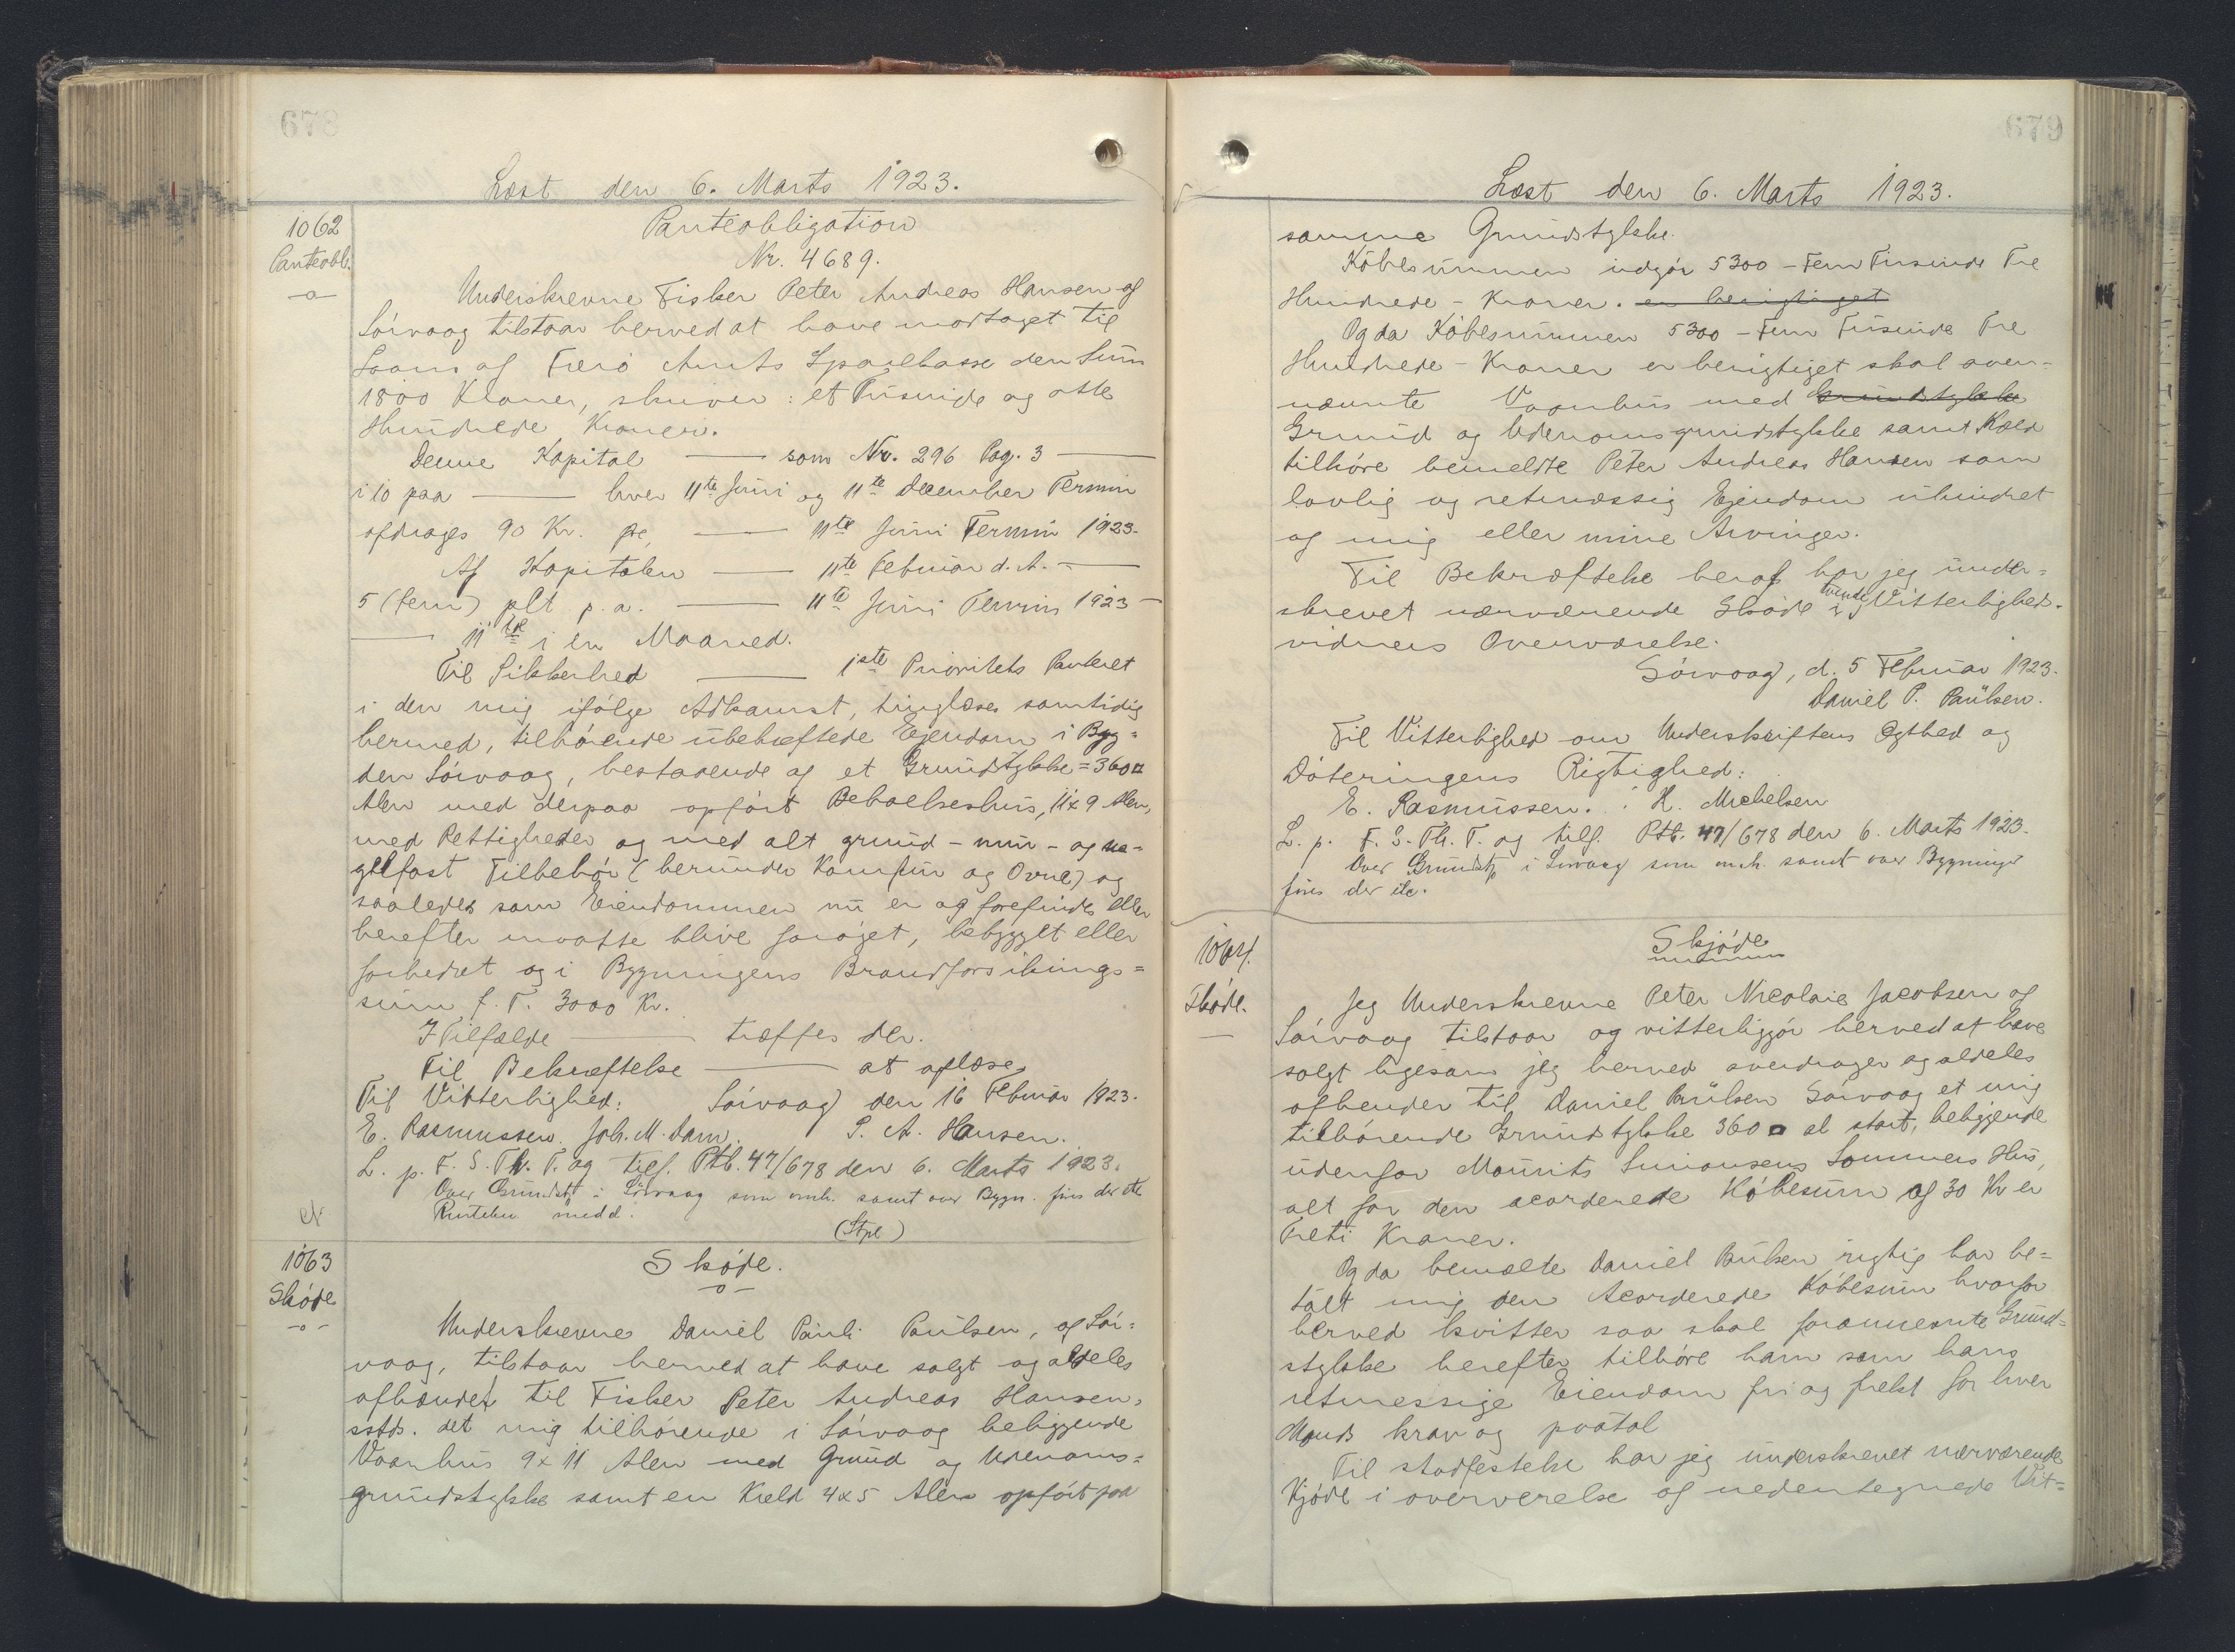 678
Læst den 6. Marts 1923.
1062
Panteobl.
Panteobligation
Nr. 4689.
Underskrevne Fisker Peter Andreas Hansen af
Sórvaag tilstaar herved at have modtaget til
Laans af Færø Amts Sparekasse den Sum
1800 Kroner, skriver: et Tusinde og otte
Hundrede Kroner.
Denne Kapital — som Nr. 296 Pag. 3 —
i 10 paa — hver 11te Juni og 11te December Termin
afdrages 90 Kr. — 11te Juni Termin 1923.
Af Kapitalen — 11te Februar d. A. —
5 (fem) pCt p. a. — 11te Juni Termin 1923 —
— 11te i en Maaned.
Til Sikkerhed — 1ste Prioritets Panteret
i den mig ifølge Adkomst, tinglæses samtidig
hermed, tilhørende ubehæftede Ejendom i Byg=
den Sórvaag, bestaaende af et Grundstykke = 360 □
Alen med derpaa opført Beboelseshus, 11x9 Alen,
med Rettigheder og med alt grund - mur - og na-
gelfast Tilbehør (herunder Komfur og Ovne) og
saaledes som Eiendommen nu er og forefindes eller
herefter maatte blive forøget, bebygget eller
forbedret og i Bygningens Brandforsikrings=
sum f. T. 3000 Kr.
I Tilfælde — træffes der.
Til Bekræftelse — at aflæse
Til Vitterlighed: Sórvaag den 16 Februar 1923.
E. Rasmussen. Joh. M. Dam. P. A. Hansen.
L. p. F. S. Th. T. og tilf. Ptb. 47/678 den 6. Marts 1923.
Over Grundst. i Sórvaag som omh. samt over Bygn. fins der etc
medd.
(Stpl)
1063
Skóde
Skóde.
Underskrevne Daniel Pauli Paulsen, af Sór=
vaag, tilstaar herved at have solgt og aldeles
afhændet til Fisker Peter Andreas Hansen,
sstds. det mig tilhørende i Sórvaag beliggende
Vaanhus 9 x 11 Alen med Grund og Udenoms=
grundstykke samt en Kæld 4x5 Alen opfórt paa
679
Læst den 6. Marts 1923.
samme Grundstykke.
Kóbesummen udgór 5300 - Fem Tusinde Tre
Hundrede - Kroner. er berigtiget
Og da Kóbesummen 5300 - Fem Tusinde Tre
Hundrede - Kroner er berigtiget skal oven=
nævnte Vaanhus med Grundstykke
Grund og Udenomsgrundstykke samt Kæld
tilhóre bemeldte Peter Andreas Hansen som
lovlig og retmæssig Ejendom uhindret
af mig eller mine Arvinger.
Til Bekræftelse heraf har jeg under=
skrevet nærværende Skóde i tvende Vitterligheds-
vidners Overværelse.
Sórvaag, d. 5 Februar 1923.
Daniel P. Paulsen.
Til Vitterlighed om Underskriftens Ægthed og
Dateringens Rigtighed:
E. Rasmussen. H. Michelsen
L. p. F. S. Th. T. og tilf. Ptb. 47/678 den 6. Marts 1923.
Over Grundst. i Sorvaag som omh. samt over Bygninger
fins der etc.
1064.
Skóde.
Skjóde
Jeg Underskrevne Peter Nicolaie Jacobsen af
Sórvaag tilstaar og vitterliggjór herved at have
solgt ligesom jeg herved overdrager og aldeles
afhender til Daniel Paulsen Sórvaag et mig
tilhórende Grundstykke 360 □ al stort, beliggende
udenfor Mourits Simonsens Sommers Hus,
alt for den acorderede Kóbesum af 30 Kr er
Treti Kroner.
Og da bemælte Daniel Paulsen rigtig har be=
talt mig den Acorderede Kóbesum hvorfor
herved kvitter saa skal forannevnte Grund=
stykke herefter tilhóre ham som hans
retmessige Eiendom fri og frelst for hver
Mands krav og paatal
Til stadfestelse har jeg underskrevet nærværende
Kjóde i oververelse af nedentegnede Vit=